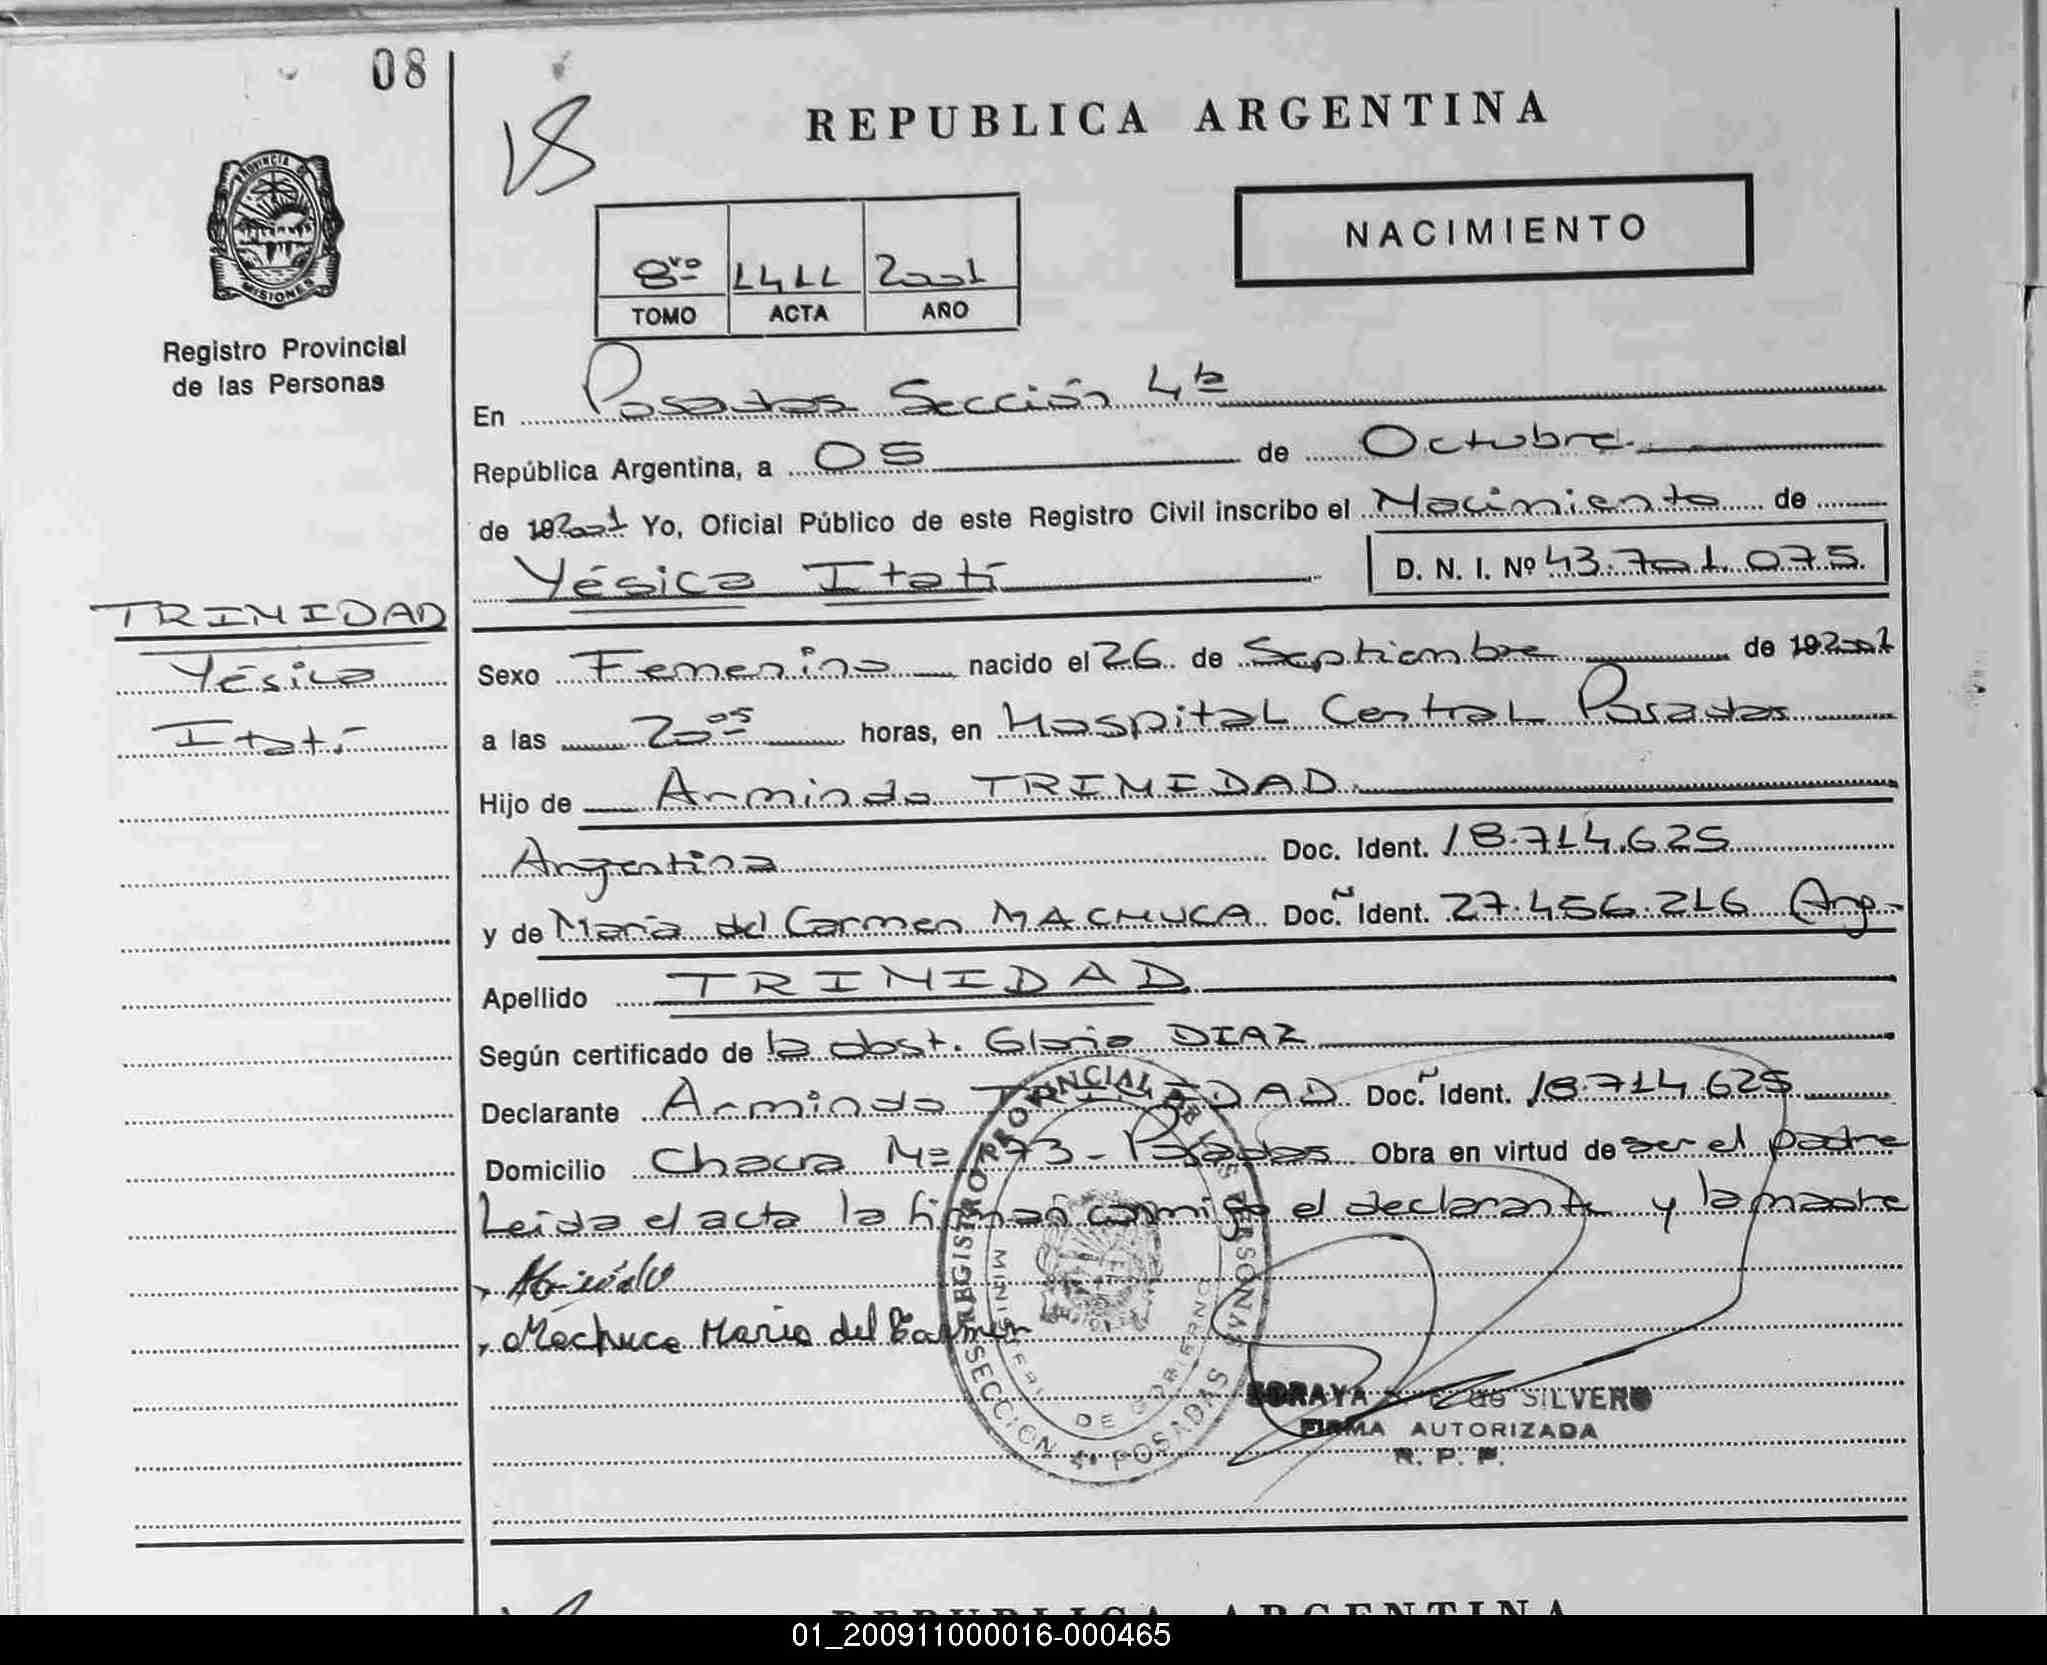 08
18
REPUBLICA ARGENTINA
PROVINCIA D
MISIONES
NACIMIENTO
8vo 1411 2001
TOMO ACTA AÑO
Registro Provincial
de las Personas
En Posadas Sección 4ta
República Argentina, a 05 de Octubre
de 192001 Yo, Oficial Público de este Registro Civil inscribo el Nacimiento de
Yésica Itatí D. N. I. Nº 43.701.075.
TRINIDAD
Yésica
Itatí
Sexo Femenino nacido el 26 de Septiembre de 192001
a las 20 05 horas, en Hospital Central Posadas
Hijo de Armindo TRINIDAD
Argentina Doc. Ident. 18.714.625
y de María del Carmen MACHUCA Doc.N Ident. 27.456.216 Arg.
Apellido TRINIDAD
Según certificado de la obst. Gloria DIAZ
Declarante Armindo TRINIDAD Doc.N Ident. 18.714.625
Domicilio Chacra Nº 173 - Posadas Obra en virtud de ser el padre
Leida el acta la firman conmigo el declarante y la madre
Machuca Maria del Carmen
REGISTRO PROVINCIAL DE LAS PERSONAS
SECCION 4ª POSADAS
DE GOBIERNO
SORAYA de SILVERO
FIRMA AUTORIZADA
R. P. P.
REPUBLICA ARGENTINA
01_200911000016-000465